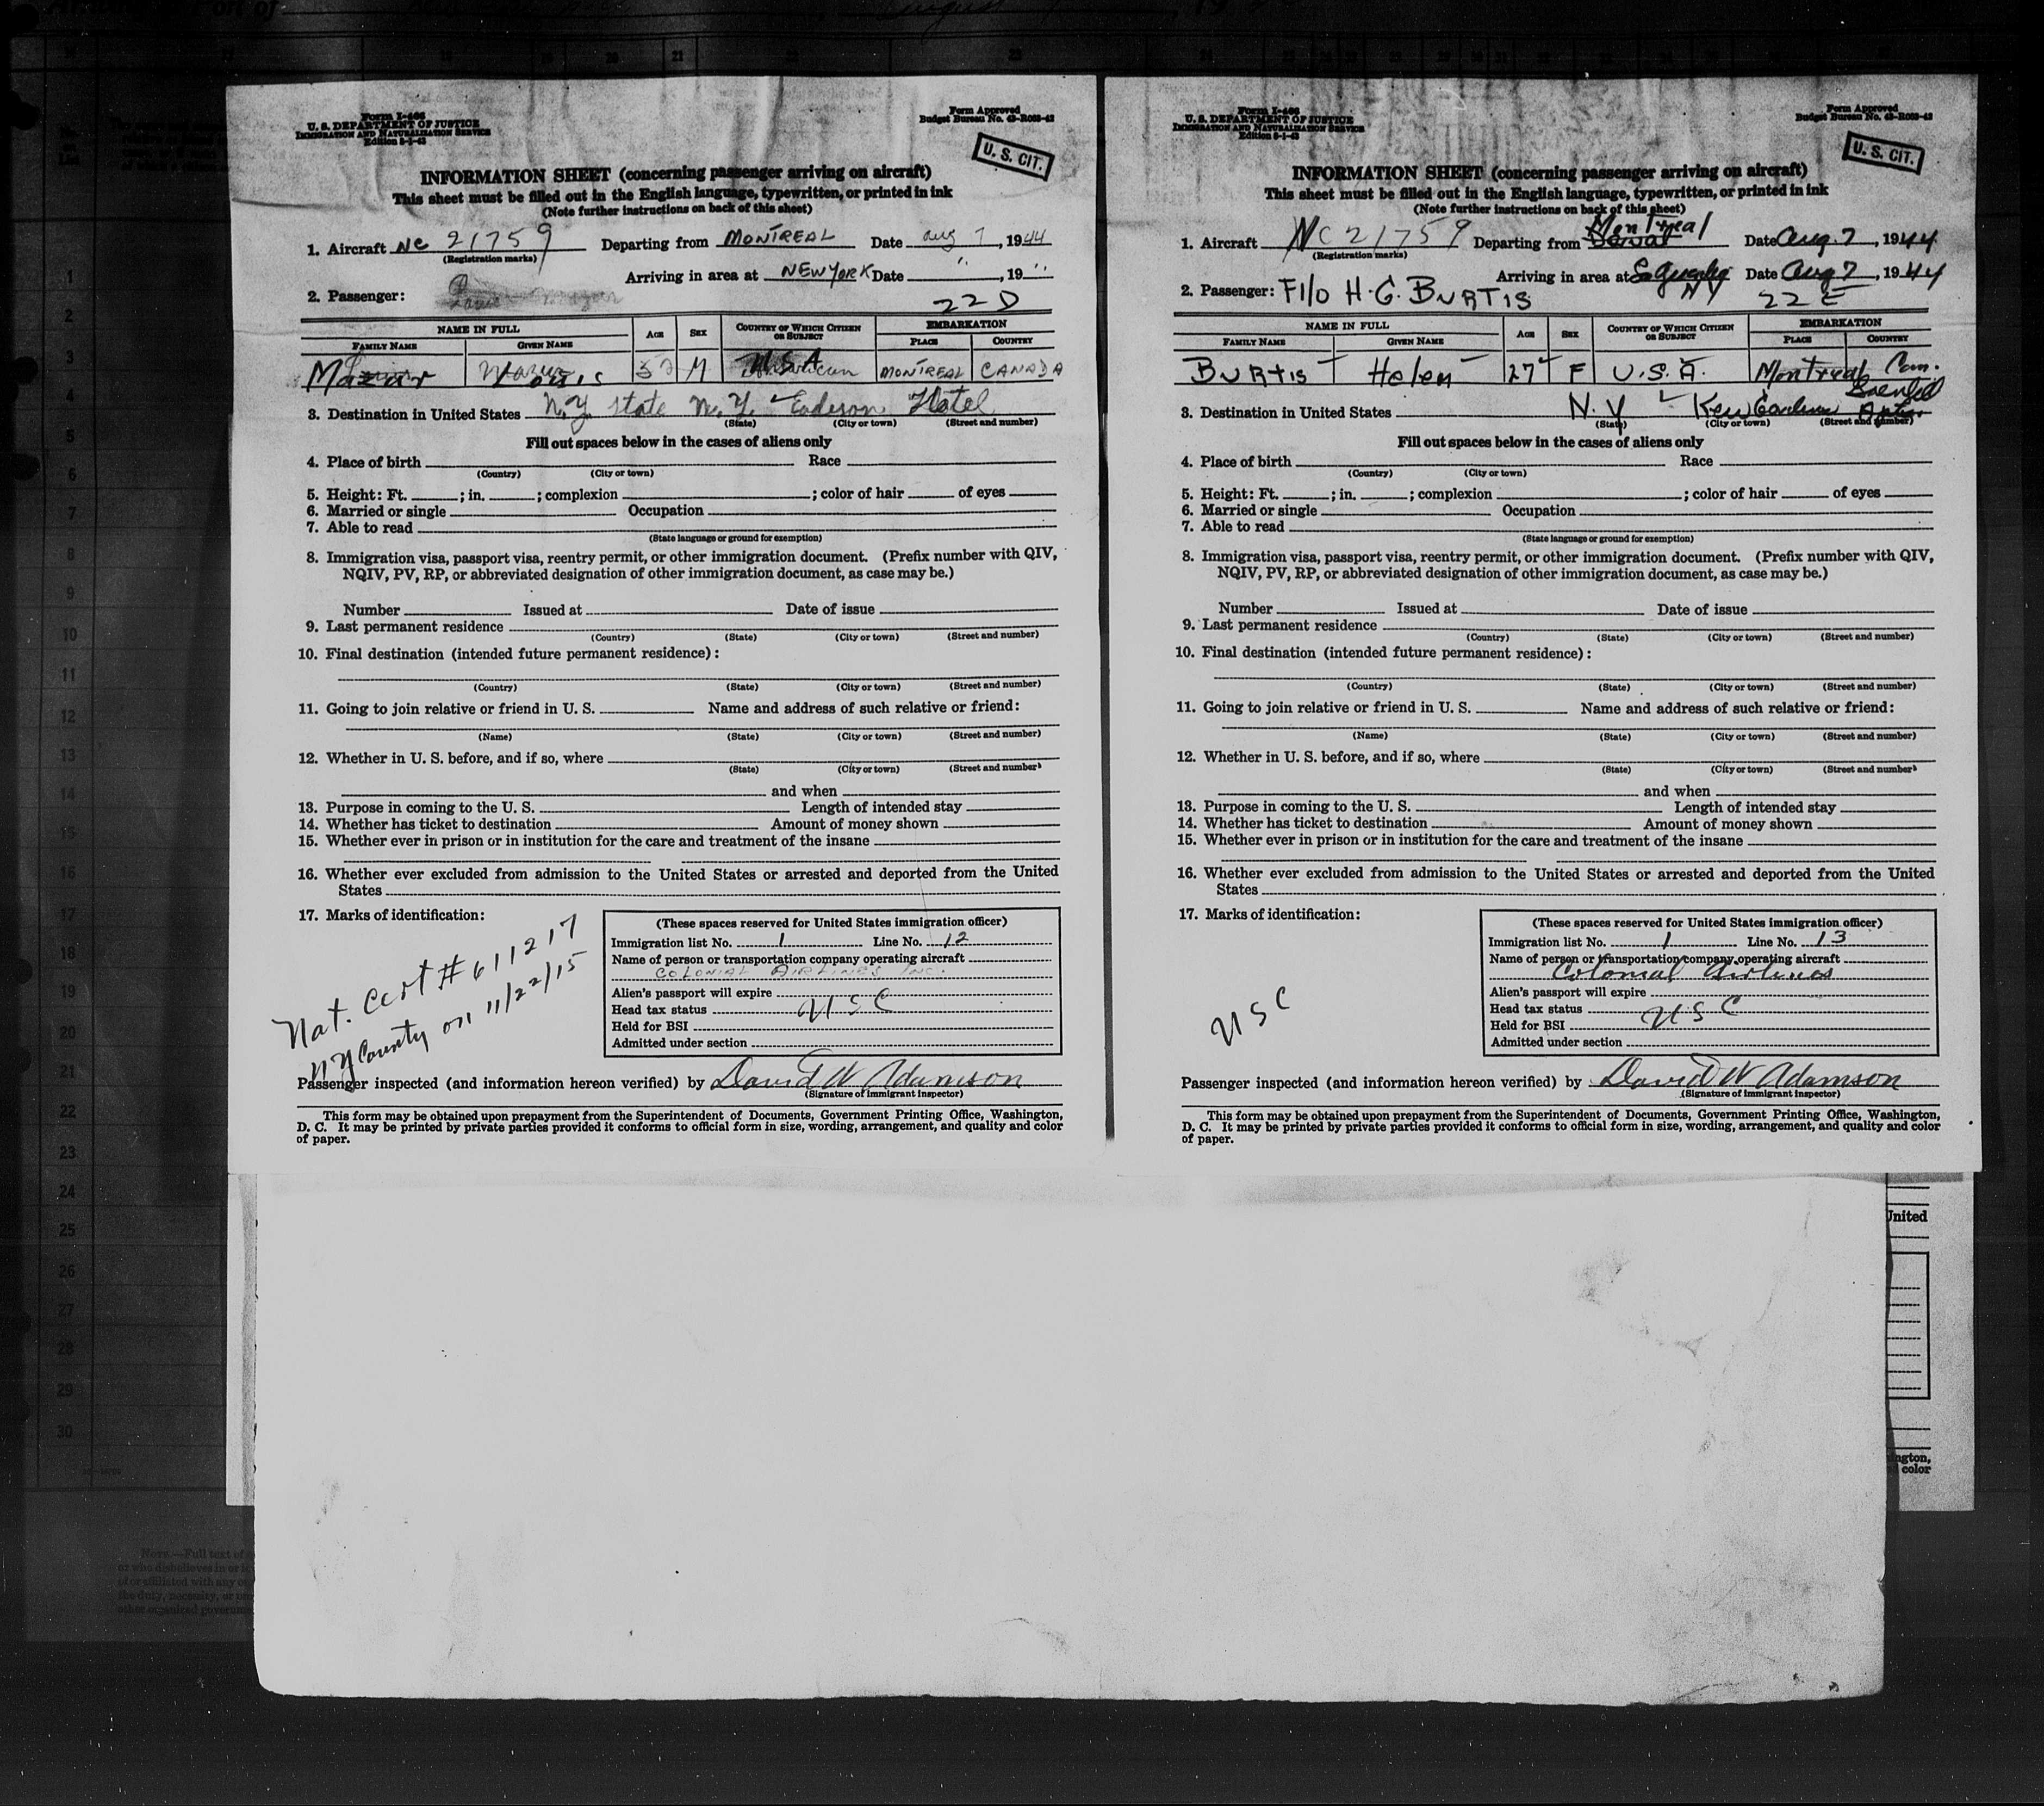 Form I-466
U. S. DEPARTMENT OF JUSTICE
IMMIGRATION AND NATURALIZATION SERVICE
Edition 5-1-43
Form Approved
Budget Bureau No. 43-R063-42
U. S. CIT.
INFORMATION SHEET (concerning passenger arriving on aircraft)
This sheet must be filled out in the English language, typewritten, or printed in ink
(Note further instructions on back of this sheet)
1. Aircraft NC 21759 Departing from MONTREAL Date Aug 7, 1944
(Registration marks)
Arriving in area at NEW YORK Date " , 19 "
2. Passenger:
22 D
NAME IN FULL AGE SEX COUNTRY OF WHICH CITIZEN OR SUBJECT EMBARKATION
FAMILY NAME GIVEN NAME PLACE COUNTRY
Mazur Louis M U.S.A MONTREAL CANADA
3. Destination in United States N.Y. State N.Y. Edison Hotel
(State) (City or town) (Street and number)
Fill out spaces below in the cases of aliens only
4. Place of birth Race
(Country) (City or town)
5. Height: Ft. ; in. ; complexion ; color of hair of eyes
6. Married or single Occupation
7. Able to read
(State language or ground for exemption)
8. Immigration visa, passport visa, reentry permit, or other immigration document. (Prefix number with QIV,
NQIV, PV, RP, or abbreviated designation of other immigration document, as case may be.)
Number Issued at Date of issue
9. Last permanent residence
(Country) (State) (City or town) (Street and number)
10. Final destination (intended future permanent residence):
(Country) (State) (City or town) (Street and number)
11. Going to join relative or friend in U. S. Name and address of such relative or friend:
(Name) (State) (City or town) (Street and number)
12. Whether in U. S. before, and if so, where
(State) (City or town) (Street and number)
and when
13. Purpose in coming to the U. S. Length of intended stay
14. Whether has ticket to destination Amount of money shown
15. Whether ever in prison or in institution for the care and treatment of the insane
16. Whether ever excluded from admission to the United States or arrested and deported from the United
States
17. Marks of identification:
Nat. Cert # 611217
NY County on 11/22/15
(These spaces reserved for United States immigration officer)
Immigration list No. 1 Line No. 12
Name of person or transportation company operating aircraft
COLONIAL AIRLINES INC.
Alien's passport will expire
Head tax status USC
Held for BSI
Admitted under section
Passenger inspected (and information hereon verified) by David W Adamson
(Signature of immigrant inspector)
This form may be obtained upon prepayment from the Superintendent of Documents, Government Printing Office, Washington,
D. C. It may be printed by private parties provided it conforms to official form in size, wording, arrangement, and quality and color
of paper.
Form I-466
U. S. DEPARTMENT OF JUSTICE
IMMIGRATION AND NATURALIZATION SERVICE
Edition 5-1-43
Form Approved
Budget Bureau No. 43-R063-42
U. S. CIT.
INFORMATION SHEET (concerning passenger arriving on aircraft)
This sheet must be filled out in the English language, typewritten, or printed in ink
(Note further instructions on back of this sheet)
1. Aircraft NC 21759 Departing from Montreal Date Aug. 7, 1944
(Registration marks)
Arriving in area at NY Date Aug 7, 1944
2. Passenger: F/O H. G. BURTIS
22 E
NAME IN FULL AGE SEX COUNTRY OF WHICH CITIZEN OR SUBJECT EMBARKATION
FAMILY NAME GIVEN NAME PLACE COUNTRY
BURTIS Helen 27 F U.S.A. Montreal Can.
3. Destination in United States N.Y Kew Gardens
(State) (City or town) (Street and number)
Fill out spaces below in the cases of aliens only
4. Place of birth Race
(Country) (City or town)
5. Height: Ft. ; in. ; complexion ; color of hair of eyes
6. Married or single Occupation
7. Able to read
(State language or ground for exemption)
8. Immigration visa, passport visa, reentry permit, or other immigration document. (Prefix number with QIV,
NQIV, PV, RP, or abbreviated designation of other immigration document, as case may be.)
Number Issued at Date of issue
9. Last permanent residence
(Country) (State) (City or town) (Street and number)
10. Final destination (intended future permanent residence):
(Country) (State) (City or town) (Street and number)
11. Going to join relative or friend in U. S. Name and address of such relative or friend:
(Name) (State) (City or town) (Street and number)
12. Whether in U. S. before, and if so, where
(State) (City or town) (Street and number)
and when
13. Purpose in coming to the U. S. Length of intended stay
14. Whether has ticket to destination Amount of money shown
15. Whether ever in prison or in institution for the care and treatment of the insane
16. Whether ever excluded from admission to the United States or arrested and deported from the United
States
17. Marks of identification:
USC
(These spaces reserved for United States immigration officer)
Immigration list No. 1 Line No. 13
Name of person or transportation company operating aircraft
Colonial Airlines
Alien's passport will expire
Head tax status USC
Held for BSI
Admitted under section
Passenger inspected (and information hereon verified) by David W Adamson
(Signature of immigrant inspector)
This form may be obtained upon prepayment from the Superintendent of Documents, Government Printing Office, Washington,
D. C. It may be printed by private parties provided it conforms to official form in size, wording, arrangement, and quality and color
of paper.